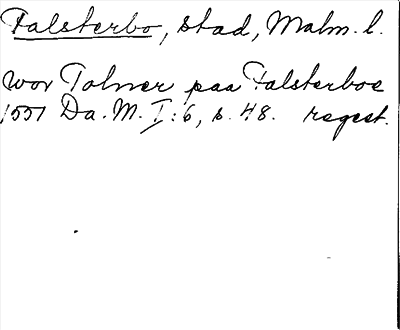 Falsterbo, stad, Malm. l.
wor Tolner paa Falsterboe
1551 Da. M. I: 6, s. 48. regest.